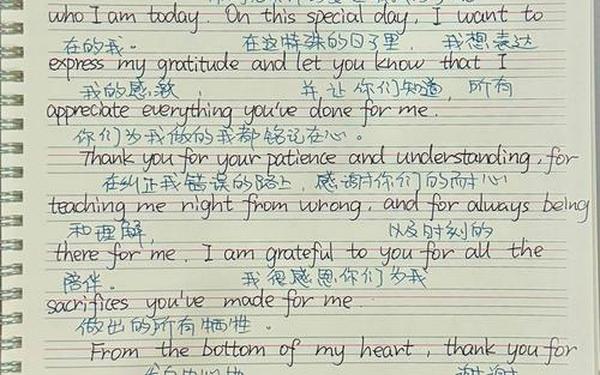 who I am today. On this special day, I want to
在的我。 在这特殊的日子里， 我想表达
express my gratitude and let you know that I
我的感激， 并让你们知道，所有
appreciate everything you've done for me.
你们为我做的我都铭记在心。
Thank you for your patience and understanding, for
在纠正我错误的路上，感谢你们的耐心
teaching me right from wrong, and for always being
和理解， 以及时刻的
there for me. I am grateful to you for all the
陪伴。 我很感恩你们为我
sacrifices you've made for me.
做出的所有牺牲。
From the bottom of my heart, thank you for